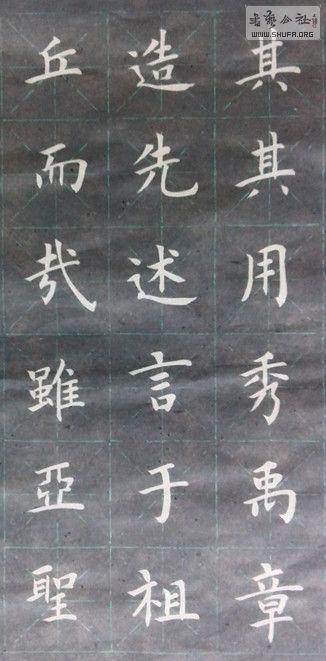 其其用秀禹章
造先述言于祖
丘而哉雖亞聖
WWW.SHUFA.ORG